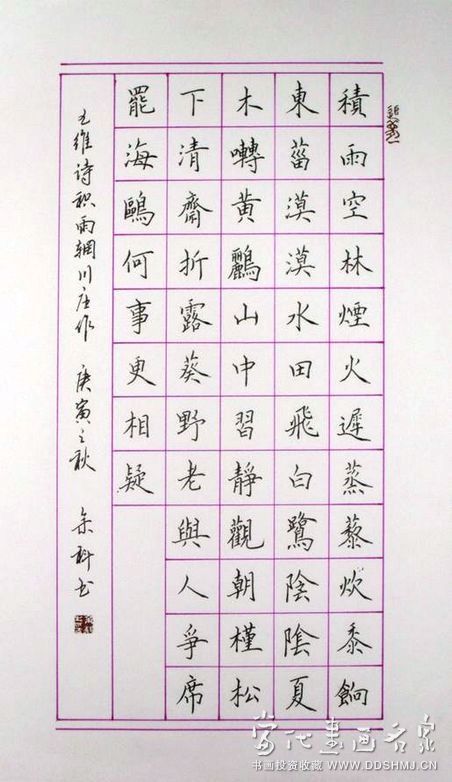 積雨空林煙火遲蒸藜炊黍餉
東菑漠漠水田飛白鷺陰陰夏
木囀黃鸝山中習靜觀朝槿松
下清齋折露葵野老與人爭席
罷海鷗何事更相疑
王維诗积雨輞川庄作 庚寅之秋 余科书
当代书画名家
书画投资收藏 WWW.DDSHMJ.CN